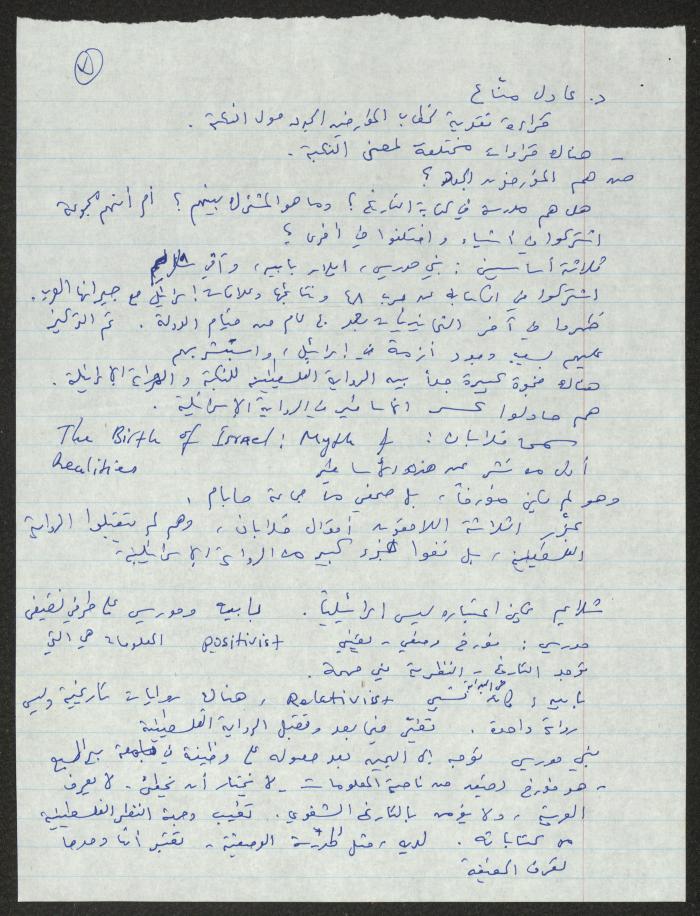 د. عادل منّاع
قراءة نقدية لخطاب المؤرخين الجدد حول النكبة.
هناك قراءات مختلفة لمعنى النكبة.
من هم المؤرخون الجدد؟
هل هم مدرسة في كتابة التاريخ؟ وما هو المشترك بينهم؟ أم أنهم مجموعة
اشتركوا في أشياء واختلفوا في أخرى؟
ثلاثة أساسيين: بني موريس، ايلان بابيه، وآفي شلايم
اشتركوا في الكتابة عن حرب 48 ونتائجها وعلاقات اسرائيل مع جيرانها العرب.
ظهروا في آخر الثمانينات بعد 40 عام من قيام الدولة. تم التركيز
عليهم بسبب وجود أزمة في اسرائيل، واستبشر بهم
هناك فجوة كبيرة جداً بين الرواية الفلسطينية للنكبة والرواية الاسرائيلية.
هم حاولوا كسر الأساطير في الرواية الاسرائيلية.
سمحا فلابان: The Birth of Israel: Myth &
Realities
أول من نشر عن هذه الأساطير
وهو لم يكن مؤرخاً، بل صحفي من جماعة مابام.
الثلاثة اللاحقون أقوال فلابان، وهم لم يتقبلوا الرواية
الفلسطينية، بل نفوا جزء كبير من الرواية الاسرائيلية.
شلايم يمكن اعتباره ليس اسرائيلياً. بابيه وموريس على طرفي نقيض
موريس: مؤرخ وصفي - يعني positivist المعلومات هي التي
توجد التاريخ - النظرية غير مهمة.
بابيه: في البداية نسبي Relativist، هناك روايات تاريخية وليس
رواية واحدة. تغيّر فيما بعد وتقبل الرواية الفلسطينية
بني موريس توجه إلى اليمين بعد حصوله على وظيفة في جامعة بئر السبع
- هو مؤرخ دقيق من ناحية المعلومات - لا يختار أن يخطئ. لا يعرف
العربية، ولا يؤمن بالتاريخ الشفوي. تغيب وجهة النظر الفلسطينية
من كتاباته. لديه، مثل المدرسة الوصفية، تعتبر أنها وحدها
تعرف الحقيقة